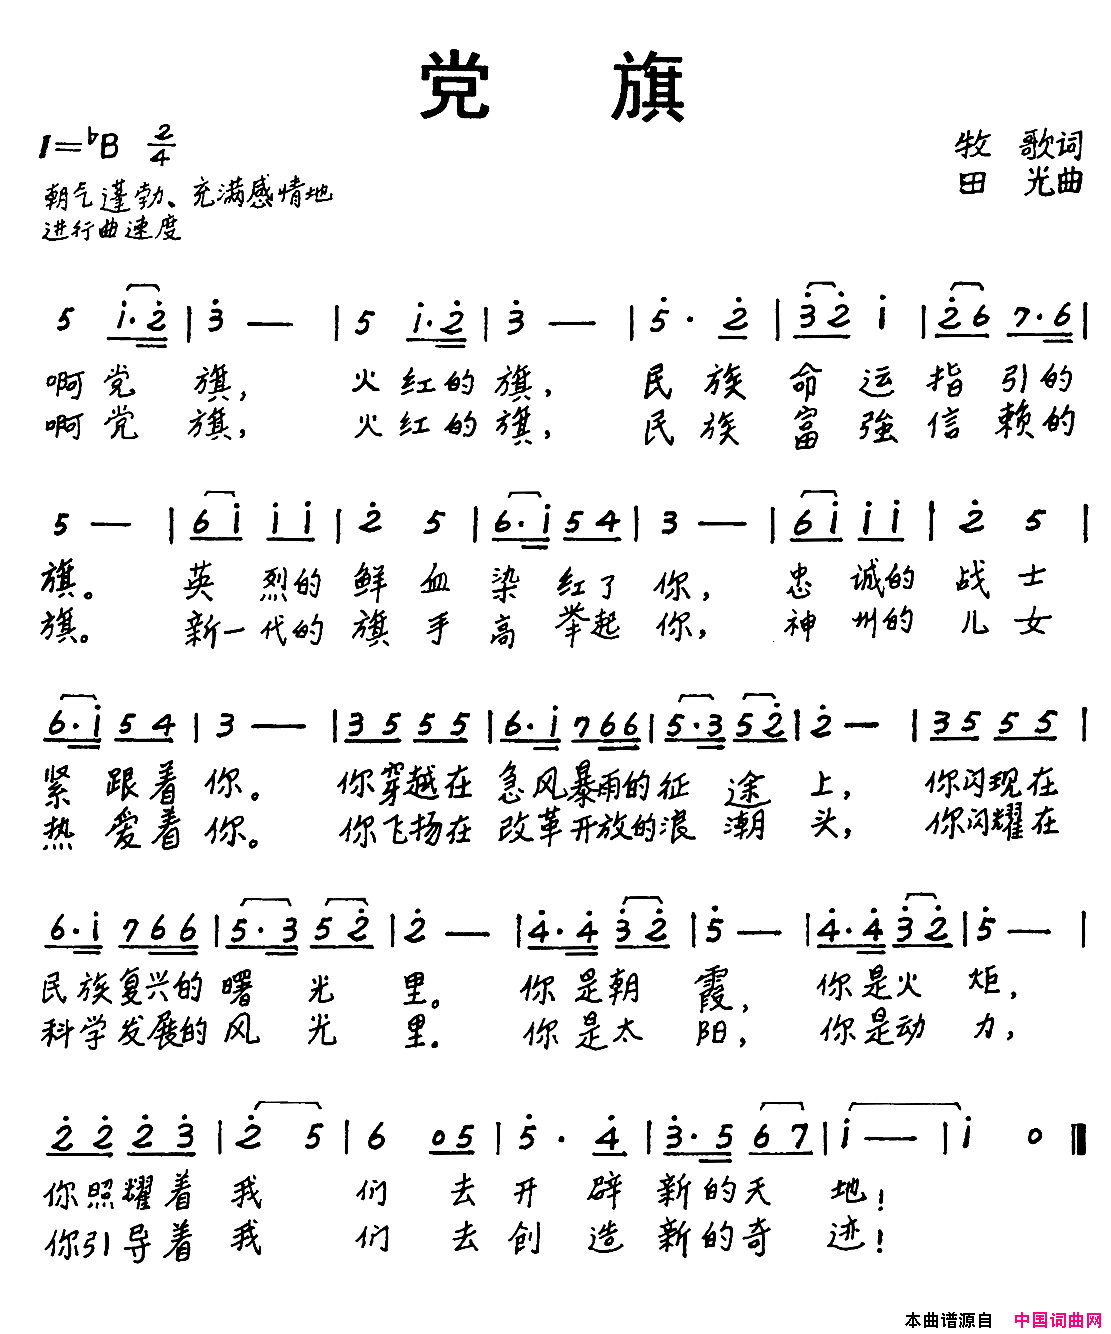 党 旗
1=♭B 2/4
牧 歌词
朝气蓬勃、充满感情地
田 光曲
进行曲速度
5 i·2̇ | 3̇ — | 5 i·2̇ | 3̇ — | 5̇· 2̇ | 3̇2̇ i | 2̇6 7·6 |
啊党 旗, 火红的旗, 民 族 命 运 指 引的
啊党 旗, 火红的旗, 民 族 富 強 信 赖的
5 — | 6i ii | 2̇ 5 | 6·i 54 | 3 — | 6i ii | 2̇ 5 |
旗。 英 烈的 鲜 血 染 红了 你, 忠 诚的 战 士
旗。 新一代的 旗 手 高 举起 你, 神 州的 儿 女
6·i 54 | 3 — | 355 5 | 6·i 766 | 5·3 52̇ | 2̇ — | 35 55 |
紧 跟着 你。 你穿越在 急风暴雨的征 途 上, 你闪现在
热 爱着 你。 你飞扬在 改革开放的浪 潮 头, 你闪耀在
6·i 766 | 5·3 52̇ | 2̇ — | 4̇·4̇ 3̇2̇ | 5̇ — | 4̇·4̇ 3̇2̇ | 5̇ — |
民族复兴的 曙 光 里。 你是朝 霞, 你是火 炬,
科学发展的 风 光 里. 你是太 阳, 你是动 力,
2̇2̇ 2̇3̇ | 2̇ 5 | 6 05 | 5̇· 4̇ | 3̇·5 67 | i — | i 0 ‖
你照耀着 我 们 去 开 辟 新的天 地!
你引导着 我 们 去 创 造 新的奇 迹!
本曲谱源自 中国词曲网